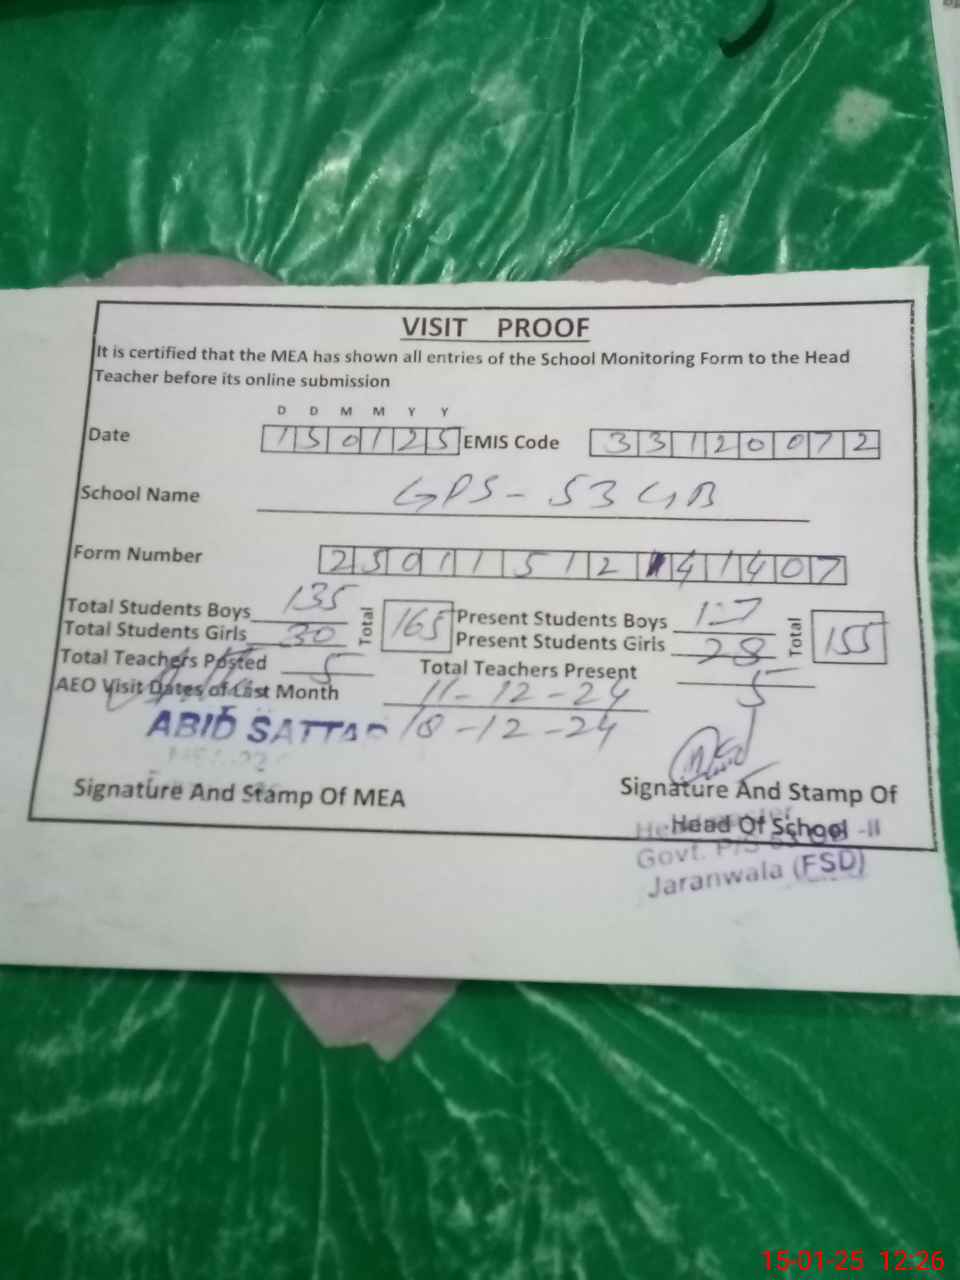 VISIT PROOF
It is certified that the MEA has shown all entries of the School Monitoring Form to the Head
Teacher before its online submission
D D M M Y Y
Date 150125 EMIS Code 33120072
School Name GPS - 53 GB
Form Number 25011512 41407
Total Students Boys 135 Total 165 Present Students Boys 127 Total 155
Total Students Girls 30 Present Students Girls 28
Total Teachers Posted 5 Total Teachers Present 5
AEO Visit Dates of Last Month 11-12-24
18-12-24
ABID SATTAR
Signature And Stamp Of MEA
Signature And Stamp Of
Head Of School
Govt. P/S 53 GB -II
Jaranwala (FSD)
15-01-25 12:26